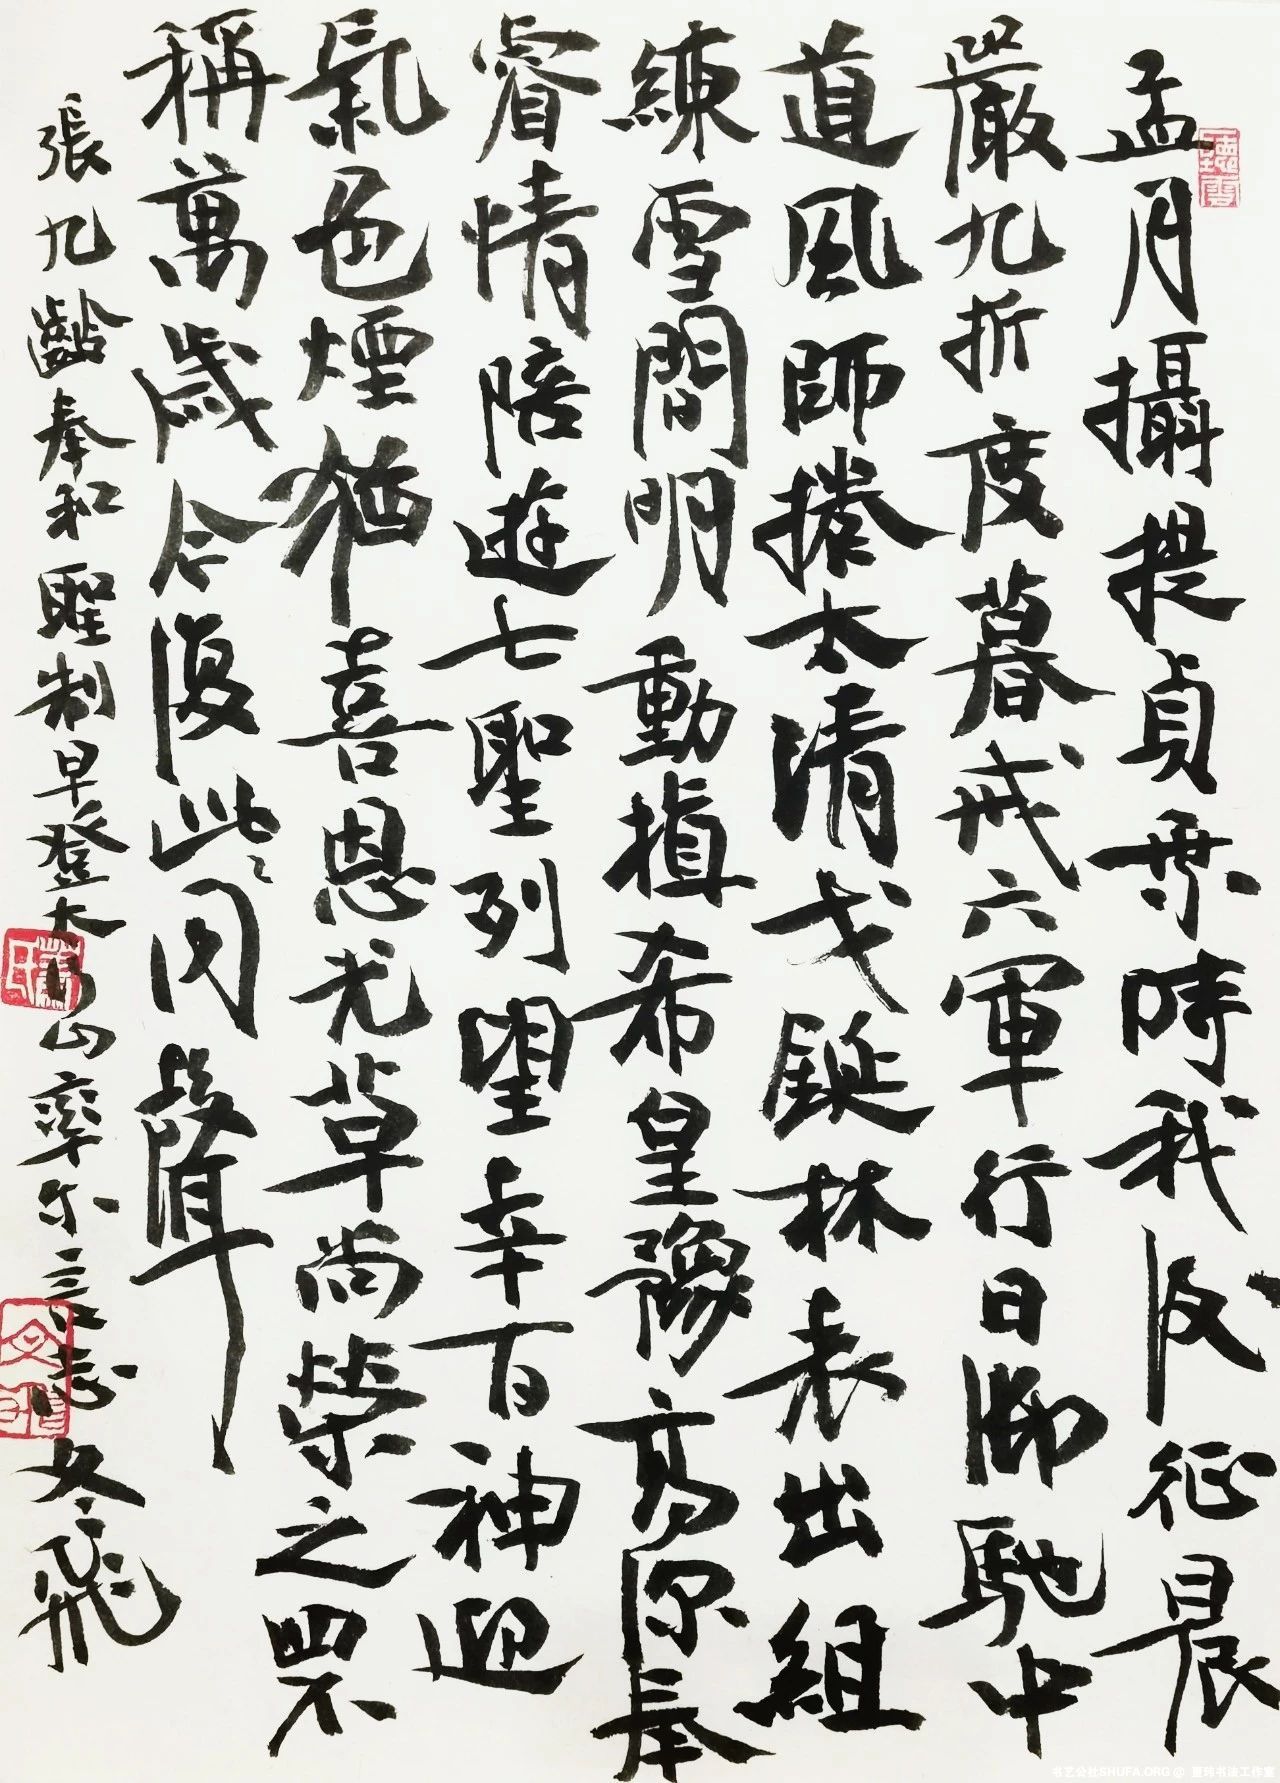 孟月攝提貞乘時我后征晨
嚴九折度暮戒六軍行日御馳中
道風師捲太清戈鋋林表出組
練雪間明動植希皇豫高深奉
睿情陪遊七聖列望幸百神迎
氣色煙猶喜恩光草尚榮之罘
稱萬歲今復此同聲
張九齡奉和聖制早登太行山率爾言志 冬飛
聽雲
书艺公社SHUFA.ORG@ 董玮书法工作室